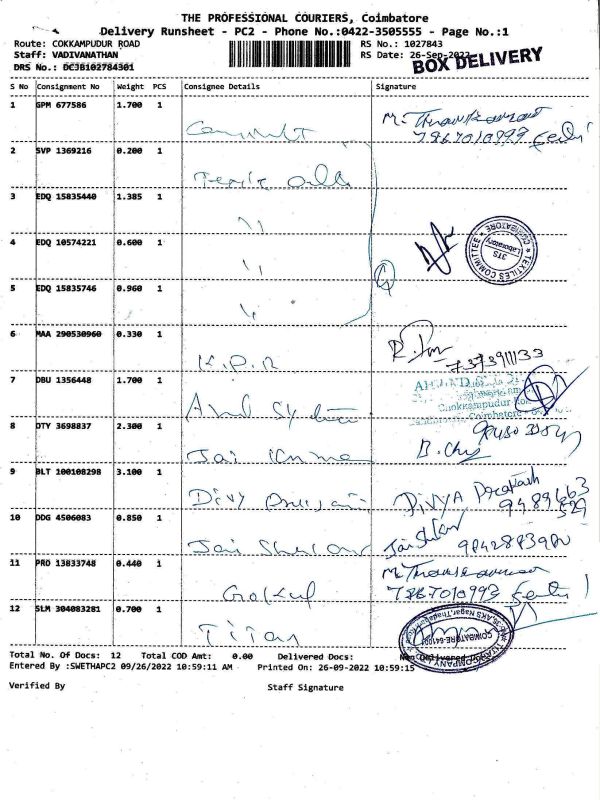 THE PROFESSIONAL COURIERS, Coimbatore
Delivery Runsheet - PC2 - Phone No.:0422-3505555 - Page No.:1
Route: COKKAMPUDUR ROAD
RS No.: 1027843
Staff: VADIVANATHAN
RS Date: 26-Sep-2022
DRS No.: DCJB102784301
BOX DELIVERY
S No Consignment No Weight PCS Consignee Details Signature
1 GPM 677586 1.700 1
7867010993
2 SVP 1369216 0.200 1
3 EDQ 15835440 1.385 1 11
4 EDQ 10574221 0.600 1 11
TEXTILES COMMITTEE
COIMBATORE
Laboratory
5 EDQ 15835746 0.960 1 11
6 MAA 290530960 0.330 1 K.P.R
7373911133
7 DBU 1356448 1.700 1
Chokkampudur
Coimbatore
8 DTY 3698837 2.300 1 Jai
9 BLT 100108298 3.100 1 Divy
DIVYA Prakash
9489663
529
10 DDG 4506083 0.850 1 Jai Shankar
Jai Shankar
11 PRO 13833748 0.440 1 Gokul
7867010993
12 SLM 304083281 0.700 1 Titan
COIMBATORE
Total No. Of Docs: 12 Total COD Amt: 0.00 Delivered Docs: Non Delivered Docs
Entered By :SWETHAPC2 09/26/2022 10:59:11 AM Printed On: 26-09-2022 10:59:15
Verified By Staff Signature